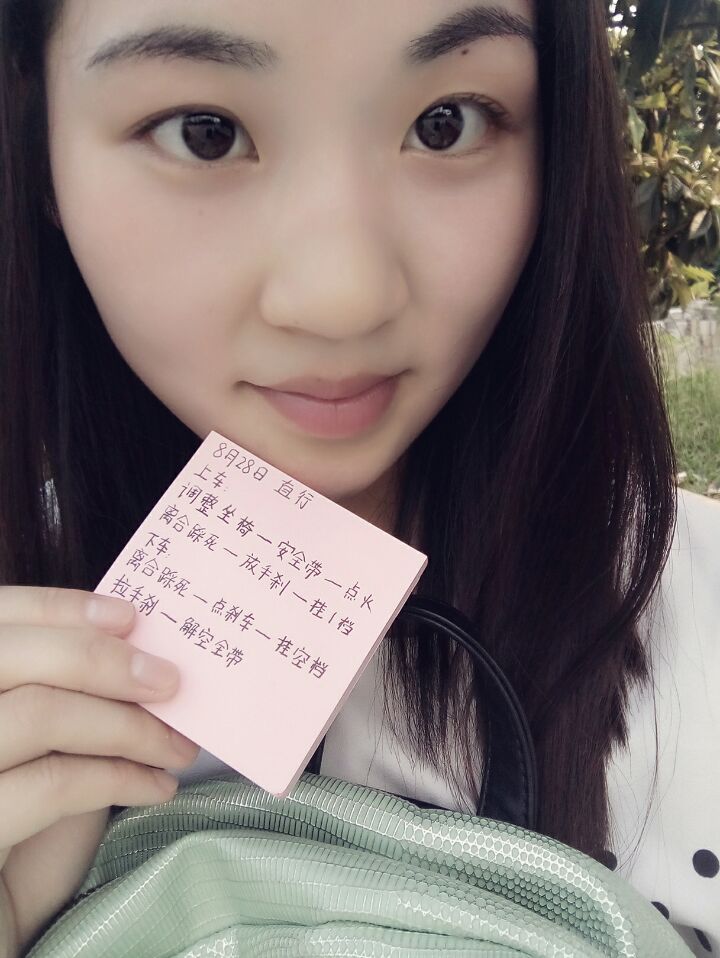 8月28日 直行
上车:
调整坐椅—安全带—点火
离合踩死—放手刹—挂1档
下车:
离合踩死—点刹车—挂空档
拉手刹—解空全带